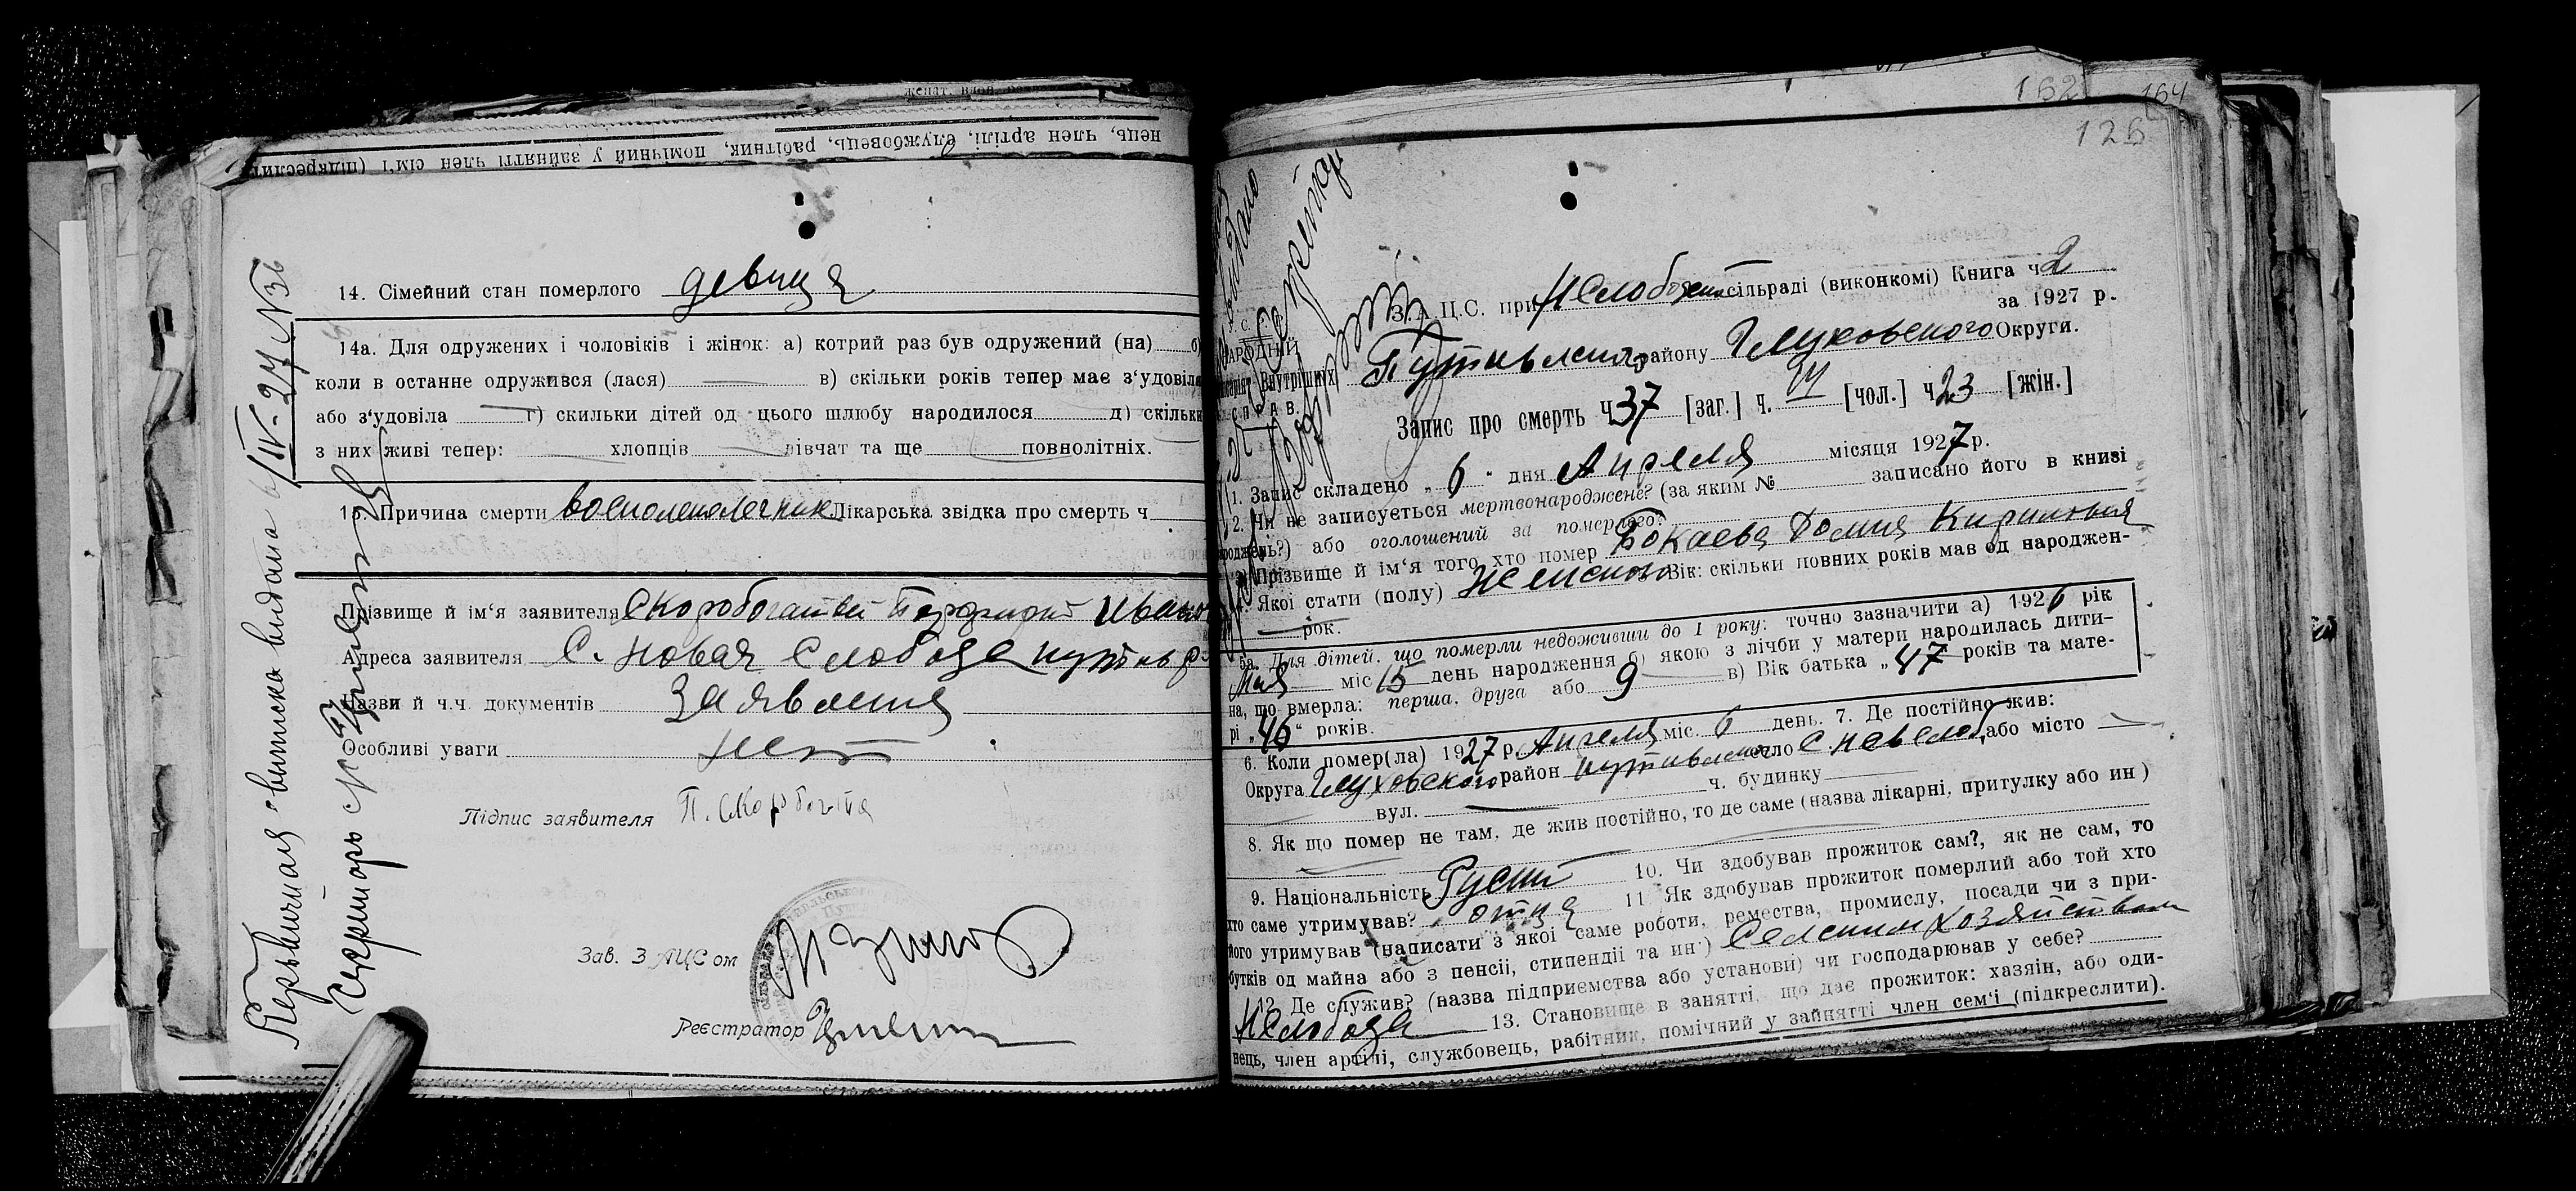 женат, вдов,
нець, член артілі, службовець, рабітник, помічний у зайнятті член сім'ї (підкреслит
14. Сімейний стан померлого девица
14а. Для одружених і чоловіків і жінок: а) котрий раз був одружений (на) б)
коли в останне одружився (лася) в) скільки років тепер має з'удовіла
або з'удовіла г) скильки дітей од цього шлюбу народилося д) скільки
з них живі тепер: хлопців дівчат та ще повнолітніх.
15. Причина смерти Лікарська звідка про смерть ч
Прізвище й ім'я заявителя Скоробогатый Иван
Адреса заявителя С. Новая Слобода путивл р
Назви й ч.ч. документів Заявления
Особливі уваги нет
Підпис заявителя П. Скоробогатий
Зав. ЗАЦСом
Реєстратор
Первичная выписка выдана 6/IV-27 №36
Секретарь
162 164
126
З.А.Ц.С. при НСлободской сільраді (виконкомі) Книга ч 2
за 1927 р.
НАРОДНІЙ
Внутрішніх
СПРАВ.
Путивльского району Глуховского Округи.
Запис про смерть ч 37 [заг.] ч. [чол.] ч 23 [жін.]
1. Запис складено „ 6 " дня Апреля місяця 1927 р.
2. Чи не записується мертвонароджене? (за яким № записано його в книзі
народжень?) або оголошений за померлого?
3. Прізвище й ім'я того хто помер Бокаева Домна Кириловна
4. Якої стати (полу) Женского Вік: скільки повних років мав од народжен-
рок.
5а. Для дітей, що померли недоживши до 1 року: точно зазначити а) 1926 рік
Мая міс 15 день народження б) якою з лічби у матери народилась дити-
на, що вмерла: перша, друга або 9 в) Вік батька „ 47 років та мате-
рі „ 46 " років.
6. Коли помер(ла) 1927 р Апреля міс. 6 день. 7. Де постійно жив:
Округа Глуховского район Путивльского село С. Нов Слоб. або місто
вул. ч. будинку
8. Як що помер не там, де жив постійно, то де саме (назва лікарні, притулку або ин)
9. Національність Русский 10. Чи здобував прожиток сам?, як не сам, то
хто саме утримував? отца 11 Як здобував прожиток померлий або той хто
його утримував (написати з якої саме роботи, ремества, промислу, посади чи з при-
бутків од майна або з пенсії, стипендії та ин) Сельским хозяйством
12. Де служив? (назва підприємства або установи) чи господарював у себе?
НСлобода 13. Становище в занятті, що дає прожиток: хазяїн, або оди-
нець, член артілі, службовець, рабітник, помічний у зайнятті член сем'ї (підкреслити).